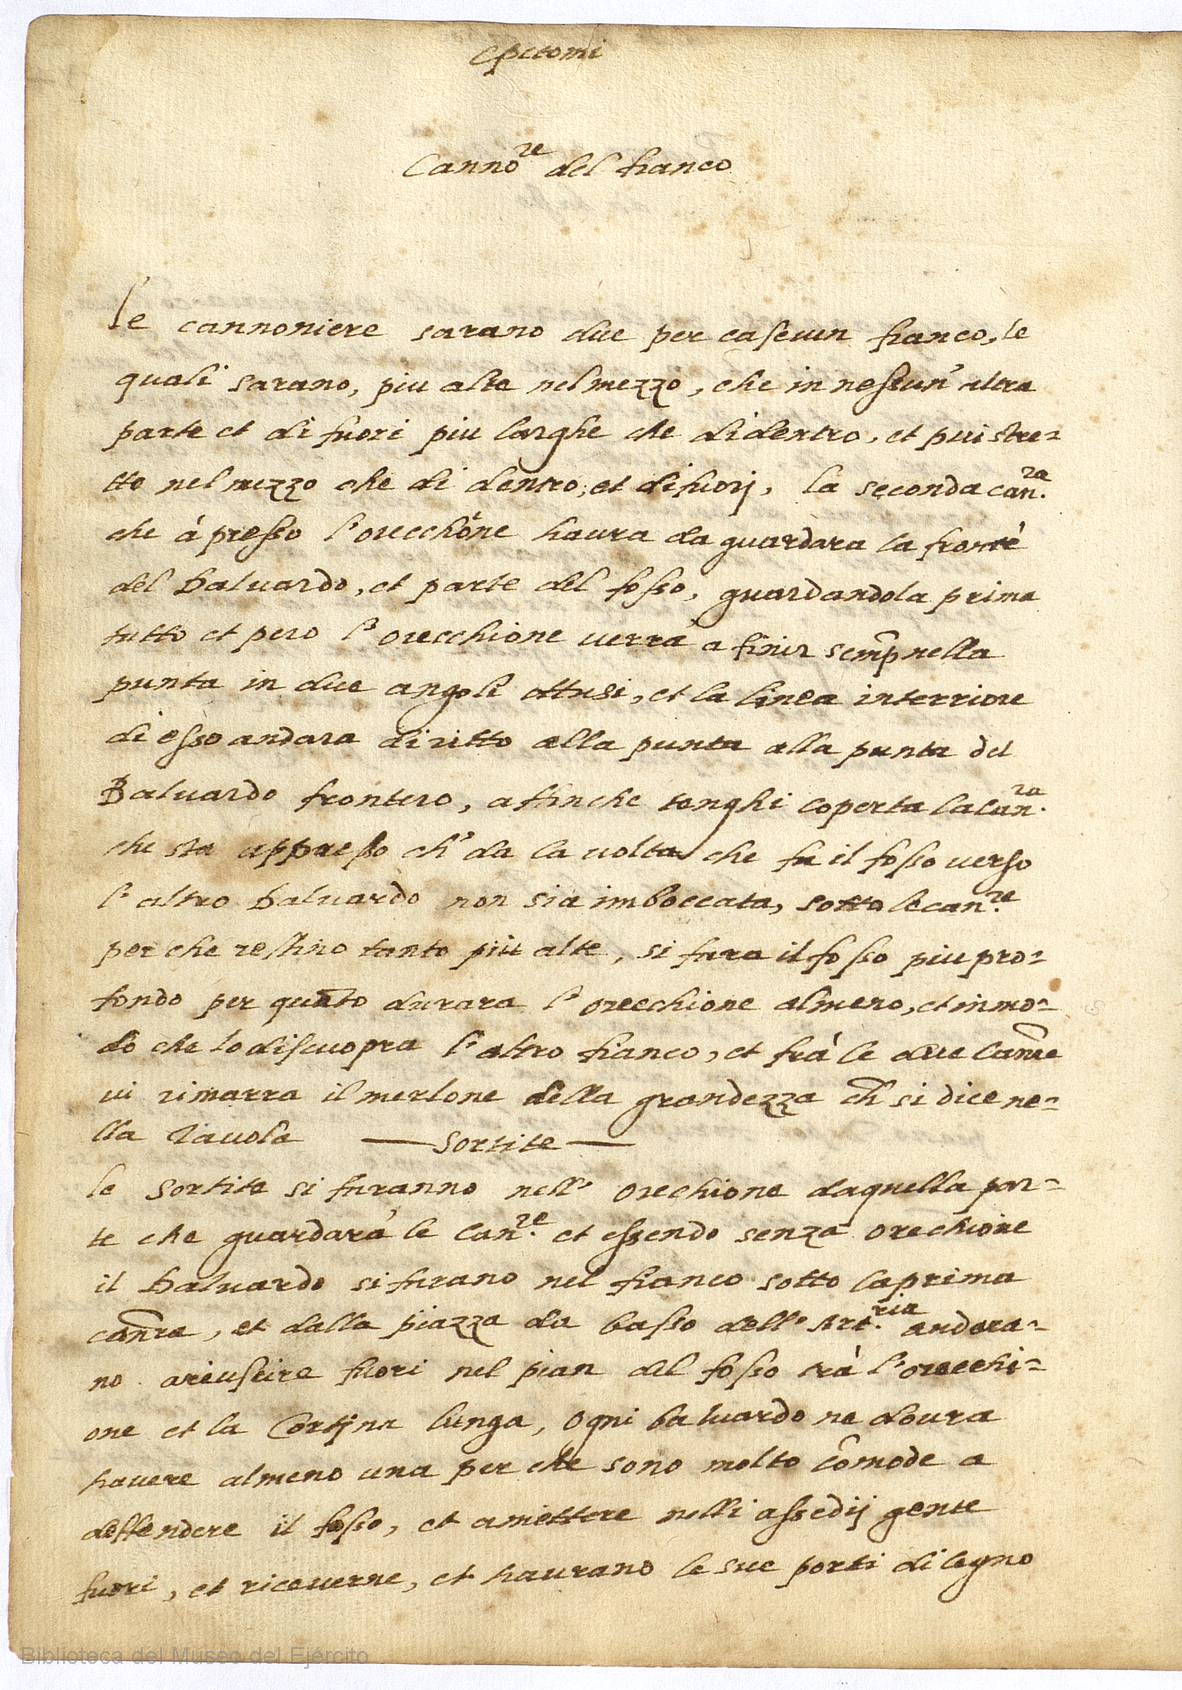 Epitomi
Canno.re del fianco
le cannoniere sarano due per casevun fianco, le
quali sarano, piu alte nel mezzo, che in nessun' altra
parte et di fuori piu larghe che didentro, et piu stre-
tto nel mezzo che di dentro, et di fuorj, la seconda can.ra
che á presso l'orecchone haura da guardara la fronte
del baluardo, et parte del fosso, guardandola prima
tutto et pero l'orecchione uerrá a finir semp nella
punta in due angoli ottusi, et la linea interriore
di esso andara diritto alla punta alla punta del
Baluardo frontero, affinche tonghi coperta la Can.ra
che sta appresso ch' da la uolta che fa il fosso uerso
l'altro baluardo non sia imboccata, sotto le can.re
per che restino tanto piu alte, si fara il fosso piu pro-
fondo per quanto durara l'orecchione almeno, et in mo-
do che lo discuopra l'altro fianco, et frá le due Canre
ui rimarra il merlone della grandezza ch si dice ne-
lla Tauola — Sortite —
le Sortite si faranno nell' orechione daquella par-
te che guardará le Can.re et essendo senza orechione
il baluardo si farano nel fianco sotto la prima
canra, et dalla piazza da basso dell' Art.ria andera-
no ariuscire fuori nel pian del fosso trá l'orecchi-
one et la Cortjna lunga, ogni baluardo ne doura
hauere almeno una per che sono molto comode a
deffendere il fosso, et amettere nelli assedij gente
fuori, et riceuerne, et haurano le sue porti di legno
Biblioteca del Museo del Ejército